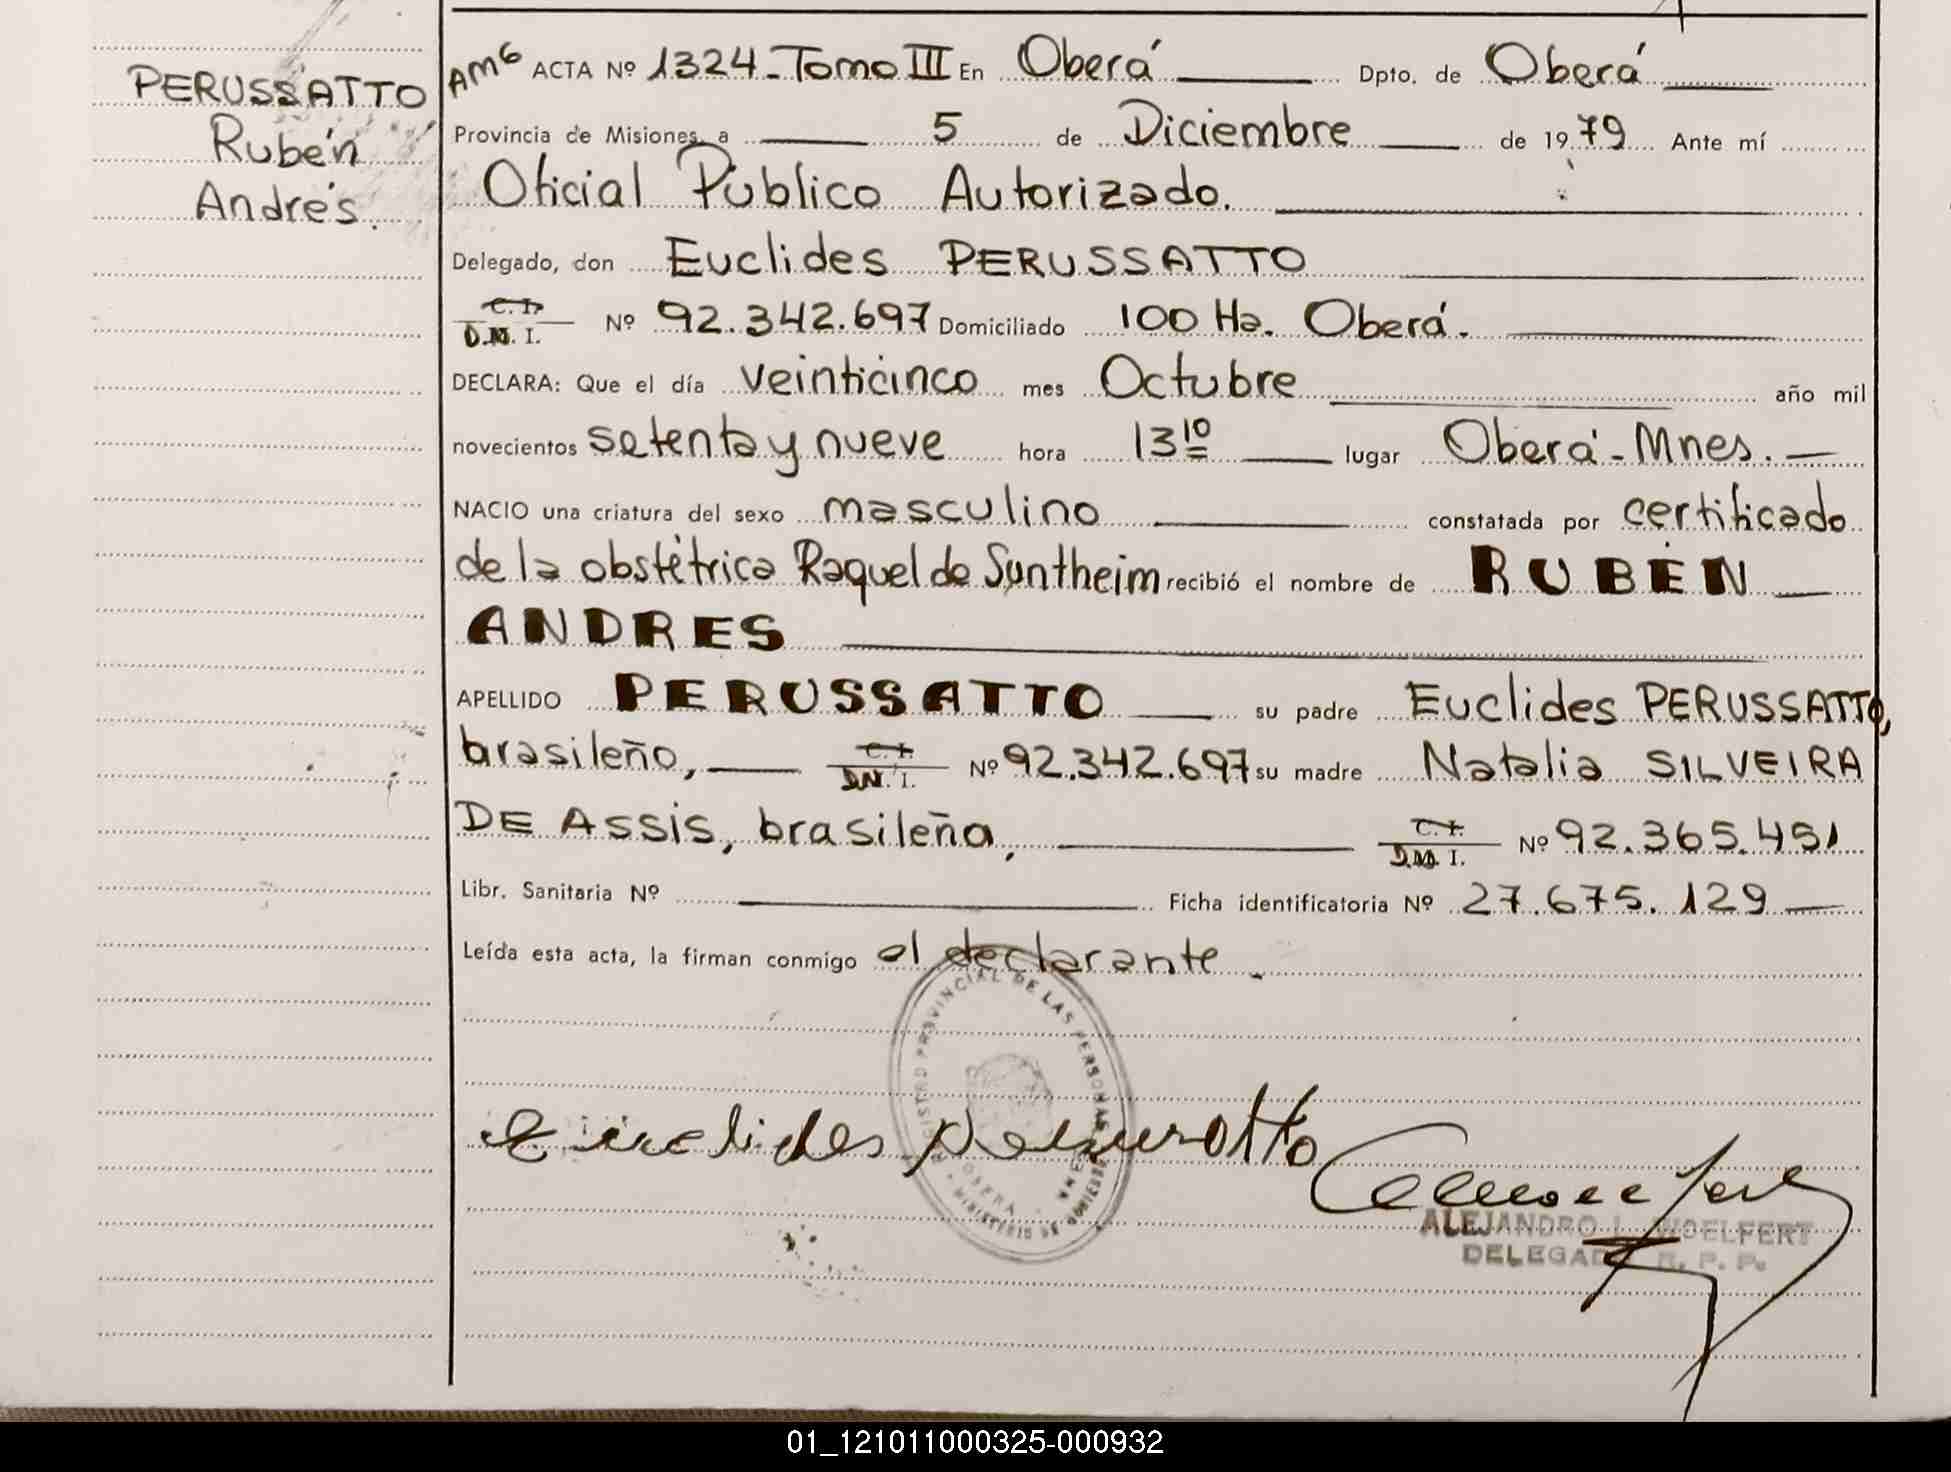 PERUSSATTO
Rubén
Andrés.
AMG ACTA Nº 1324 - Tomo III En Oberá Dpto. de Oberá
Provincia de Misiones, a 5 de Diciembre de 1979 Ante mí
Oficial Público Autorizado.
Delegado, don Euclides PERUSSATTO
C.I.
D.N.I. Nº 92.342.697 Domiciliado 100 Ha. Oberá.
DECLARA: Que el día veinticinco mes Octubre año mil
novecientos setenta y nueve hora 13 10 lugar Oberá - Mnes.
NACIO una criatura del sexo masculino constatada por certificado
de la obstétrica Raquel de Suntheim recibió el nombre de RUBÉN
ANDRES
APELLIDO PERUSSATTO su padre Euclides PERUSSATTO,
brasileño, C.I. D.N.I. Nº 92.342.697 su madre Natalia SILVEIRA
DE ASSIS, brasileña, C.I. D.N.I. Nº 92.365.451
Libr. Sanitaria Nº Ficha identificatoria Nº 27.675.129
Leída esta acta, la firman conmigo el declarante.
REGISTRO PROVINCIAL DE LAS PERSONAS
MINISTERIO DE GOBIERNO
OBERA
ALEJANDRO L. WOELFERT
DELEGADO R. P. P.
01_121011000325-000932